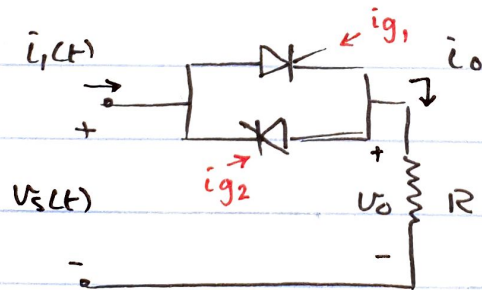 i₁(t)
ig₁
i₀
+
ig₂
+
Vs(t)
V₀
R
-
-